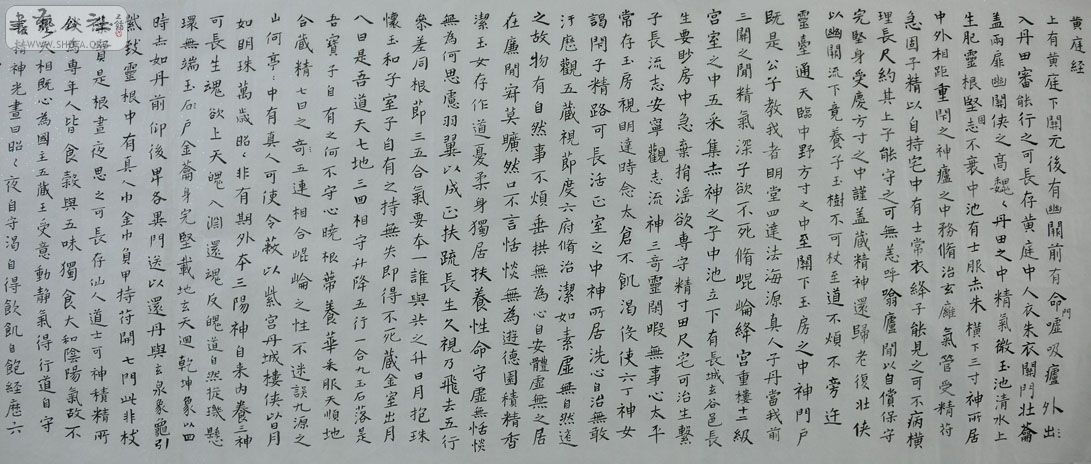 黄庭経
上有黄庭下關元後有幽闕前有命噓吸廬外出
門
入丹田審能行之可長存黄庭中人衣朱衣關門壮蘥
盖兩扉幽闕俠之高魏〻丹田之中精氣微玉池清水上
生肥靈根堅志不衰中池有士服赤朱横下三寸神所居
中外相距重閉之神廬之中務脩治玄癰氣管受精符
急固子精以自持宅中有士常衣絳子能見之可不病横
理長尺約其上子能守之可無恙呼噏廬間以自償保守
完堅身受慶方寸之中謹盖藏精神還歸老復壮俠
以幽闕流下竟養子玉樹不可杖至道不煩不旁迕
靈臺通天臨中野方寸之中至關下玉房之中神門户
既是公子教我者明堂四達法海源真人子丹當我前
三關之間精氣深子欲不死脩崐崘絳宫重樓十二級
宫室之中五采集赤神之子中池立下有長城玄谷邑長
生要眇房中急棄捐淫欲専守精寸田尺宅可治生繫
子長流志安寧觀志流神三奇靈閑暇無事心太平
常存玉房視明達時念太倉不飢渴役使六丁神女
謁閉子精路可長活正室之中神所居洗心自治無敢
汙歷觀五藏視節度六府脩治潔如素虚無自然道
之故物有自然事不煩垂拱無為心自安體虚無之居
在廉間寂莫曠然口不言恬惔無為遊德園積精香
潔玉女存作道憂柔身獨居扶養性命守虚無恬惔
無為何思慮羽翼以成正扶疏長生久視乃飛去五行
參差同根節三五合氣要本一誰與共之升日月抱珠
懷玉和子室子自有之持無失即得不死藏金室出月
入日是吾道天七地三回相守升降五行一合九玉石落是
吾寶子自有之何不守心曉根蒂養華采服天順地
合藏精七日之奇五連相合崐崘之性不迷誤九源之
山何亭〻中有真人可使令蔽以紫宫丹城樓俠以日月
如明珠萬歲昭〻非有期外本三陽神自来内養三神
可長生魂欲上天魄入淵還魂反魄道自然璣懸
環無端玉石户金籥身完堅載地玄天迴乾坤象以四
時赤如丹前仰後卑各異門送以還丹與玄泉象龜引
氣致靈根中有真人巾金巾負甲持符開七門此非枝
實是根晝夜思之可長存仙人道士可神積精所
専年人皆食榖與五味獨食太和陰陽氣故不
相既心為國主五藏王受意動静氣得行道自守
精神光晝日昭〻夜自守渴自得飲飢自飽經歷六
WWW.SHUFA.ORG